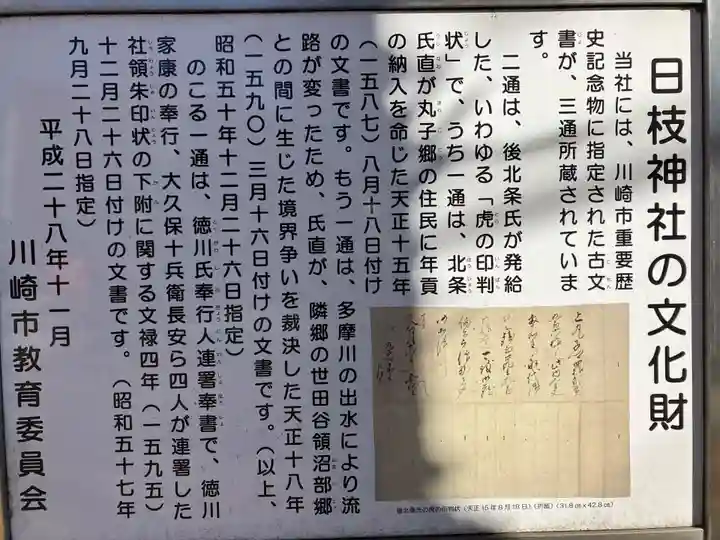 日枝神社の文化財
当社には、川崎市重要歴
史記念物に指定された古文
書が、三通所蔵されていま
す。
二通は、後北条氏が発給
した、いわゆる「虎の印判
状」で、うち一通は、北条
氏直が丸子郷の住民に年貢
の納入を命じた天正十五年
(一五八七)八月十八日付け
の文書です。もう一通は、多摩川の出水により流
路が変ったため、氏直が、隣郷の世田谷領沼部郷
との間に生じた境界争いを裁決した天正十八年
(一五九〇)三月十六日付けの文書です。(以上、
昭和五十年十二月二十六日指定)
のこる一通は、徳川氏奉行人連署奉書で、徳川
家康の奉行、大久保十兵衛長安ら四人が連署した
社領朱印状の下附に関する文禄四年(一五九五)
十二月二十六日付けの文書です。(昭和五十七年
九月二十八日指定)
平成二十八年十一月
川崎市教育委員会
後北条氏の虎の印判状(天正15年8月18日)(折紙)(31.8㎝×42.8㎝)